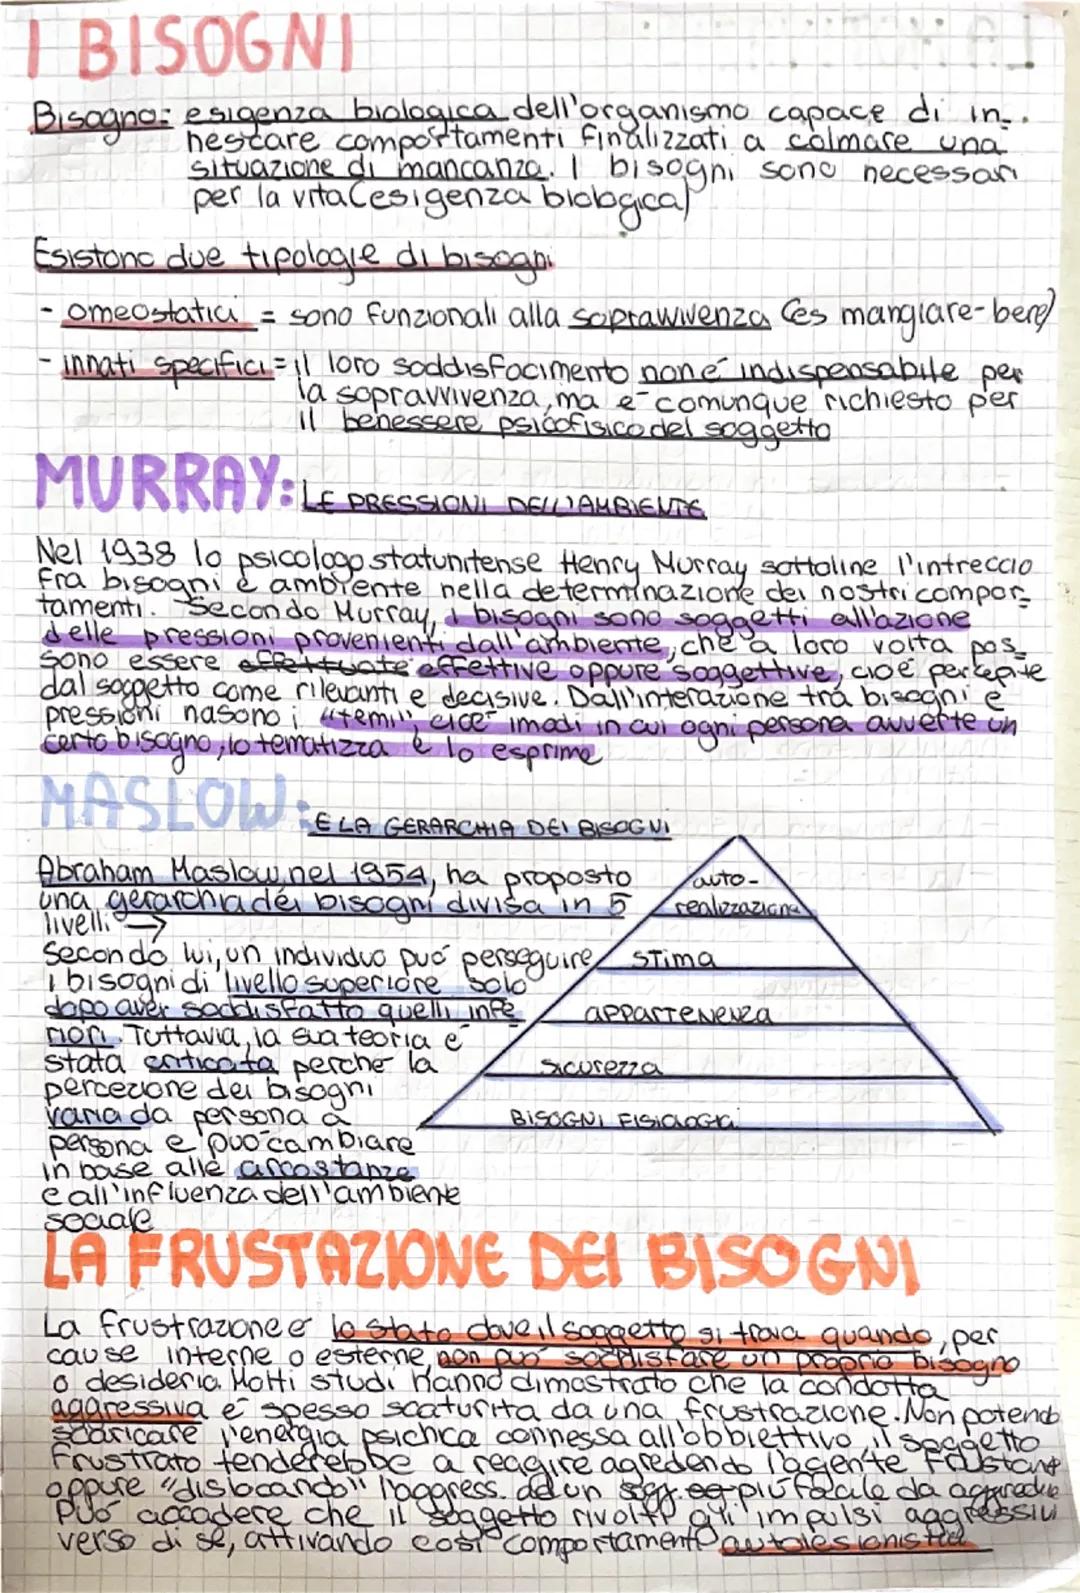 I BISOGNI
Bisogno: esigenza biologica dell'organismo capace di in-
nescare comportamenti finalizzati a colmare una
situazione di mancanza. I bisogni sono necessari
per la vita (esigenza biologica)
Esistono due tipologie di bisogni
- omeostatici = sono funzionali alla sopravvivenza (es mangiare-bere)
- innati specifici = il loro soddisfacimento non é indispensabile per
la sopravvivenza, ma e comunque richiesto per
il benessere psicofisico del soggetto
MURRAY: LE PRESSIONI DELL'AMBIENTE
Nel 1938 lo psicologo statunitense Henry Murray sottoline l'intreccio
fra bisogni e ambiente nella determinazione dei nostri compor-
tamenti. Secondo Murray, i bisogni sono soggetti all'azione
delle pressioni provenienti dall'ambiente, che a loro volta pos-
sono essere effettuate effettive oppure soggettive, cioé percepite
dal soggetto come rilevanti e decisive. Dall'interazione tra bisogni e
pressioni nasono i "temi", cioé i modi in cui ogni persona avverte un
certo bisogno, lo tematizza e lo esprime
MASLOW: E LA GERARCHIA DEI BISOGNI
Abraham Maslow, nel 1954, ha proposto
una gerarchia dei bisogni divisa in 5
livelli →
Secondo lui, un individuo può perseguire
i bisogni di livello superiore solo
dopo aver soddisfatto quelli infe
riori. Tuttavia, la sua teoria é
stata criticata perché la
percezione dei bisogni
varia da persona a
persona e può cambiare
in base alle circostanze
e all'influenza dell'ambiente
sociale
auto-
realizzazione
STIMA
APPARTENENZA
SICUREZZA
BISOGNI FISIOLOGICI
LA FRUSTAZIONE DEI BISOGNI
La frustrazione e lo stato dove il soggetto si trova quando, per
cause interne o esterne, non può soddisfare un proprio bisogno
o desiderio. Molti studi hanno dimostrato che la condotta
aggressiva é spesso scaturita da una frustrazione. Non potendo
scaricare l'energia psichica connessa all'obbiettivo, il soggetto
frustrato tenderebbe a reagire agredendo l'agente frustante
oppure "dislocando" l'aggress. ad un sogg. più facile da aggredire
Può accadere che il soggetto rivolte gli impulsi aggressivi
verso di sé, attivando così comportamenti autolesionistici